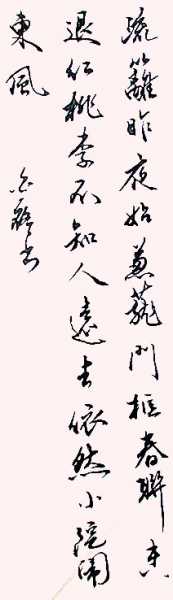 疏籬昨夜始蔥蘢門框春聯未
退紅桃李不知人遠去依然小院鬧
東風